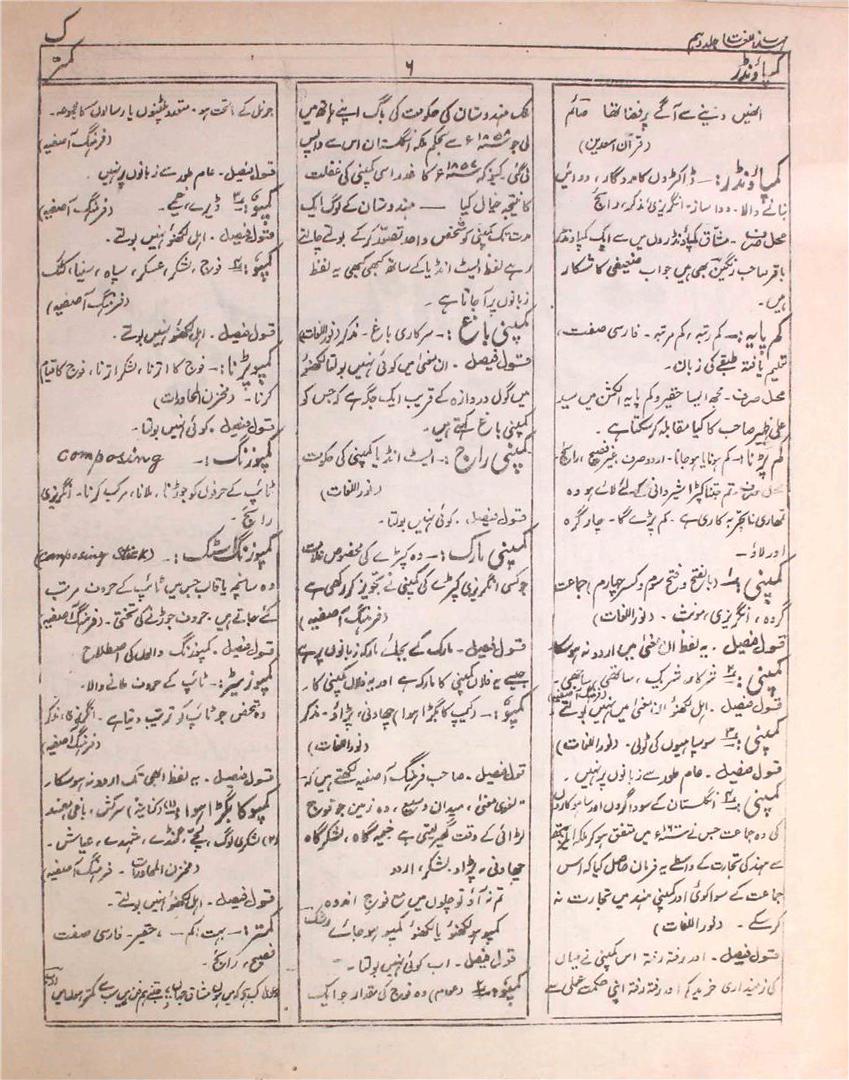 مہذب اللغات جلد دہم
ک
کمپاؤنڈر
۶
کمتر
انھیں دینے سے آگے پر فضا تھا صائم
(قرآن السعدین)
کمپاؤنڈر:۔ ڈاکٹروں کا مددگار، دوائیں
بنانے والا۔ دوا ساز۔ انگریزی، مذکر، رائج
محل صرف۔ مشتاق کمپاؤنڈروں میں سے ایک کمپاؤنڈر
باقر صاحب رنگین بھی ہیں جو اب ضعیفی کا شکار
ہیں۔
کم پایہ:۔ کم رتبہ، کم مرتبہ۔ فارسی صفت،
تعلیم یافتہ طبقے کی زبان۔
محل صرف۔ مجھ ایسا حقیر و کم پایہ الکشن میں سید
علی ظہیر صاحب کا کیا مقابلہ کر سکتا ہے۔
کم پڑنا:۔ کم ہونا یا ہو جانا۔ اردو صرف، غیر فصیح، رائج۔
محل صرف۔ تم جتنا کپڑا شیروانی کے لئے لائے ہو وہ
تمھاری ناتجربہ کاری ہے۔ کم پڑے گا۔ چار گرہ
اور لاؤ۔
کمپنی ۱؎: (بالفتح و فتح سوم و کسر چہارم) جماعت
گروہ، انگریزی، مونث۔ (نور اللغات)
قول فیصل۔ یہ لفظ ان معنیٰ میں اردو نہ ہو سکا
کمپنی ۲؎: شرکا اور شریک، ساتھی، ساجھی۔
(فرہنگ آصفیہ)
قول فیصل۔ اہل لکھنؤ ان معنیٰ میں نہیں بولتے۔
کمپنی ۳؎: سو سپاہیوں کی ٹولی۔ (نور اللغات)
قول فیصل۔ عام طور سے زبانوں پر نہیں۔
کمپنی ۴؎: انگلستان کے سوداگروں اور ساہوکاروں
کی وہ جماعت جس نے ۱۶۰۰ء میں متفق ہو کر ملکہ الزبتھ
سے ہند کی تجارت کے واسطے یہ فرمان حاصل کیا کہ اس
جماعت کے سوا کوئی اور کمپنی ہند میں تجارت نہ
کر سکے۔ (نور اللغات)
قول فیصل۔ اور رفتہ رفتہ اس کمپنی نے یہاں
کی زمینداری خرید کر اور رفتہ رفتہ اپنی حکمت عملی سے
ملک ہندوستان کی حکومت کی باگ اپنے ہاتھ میں
لی جو ۱۸۵۸ء سے بحکم ملکہ انگلستان اس سے واپس
لی گئی۔ کیونکہ ۱۸۵۷ء کا غدر اسی کمپنی کی غفلت
کا نتیجہ خیال کیا ۔۔۔ ہندوستان کے لوگ ایک
مدت تک کمپنی کو شخص واحد تصور کر کے بولتے چالتے
رہے لفظ ایسٹ انڈیا کے ساتھ کبھی کبھی یہ لفظ
زبانوں پر آ جاتا ہے۔
کمپنی باغ:۔ سرکاری باغ۔ مذکر (نور اللغات)
قول فیصل۔ ان معنیٰ میں کوئی نہیں بولتا لکھنؤ
میں گول دروازہ کے قریب ایک جگہ ہے کہ جس کو
کمپنی باغ کہتے ہیں۔
کمپنی راج:۔ ایسٹ انڈیا کمپنی کی حکومت
(نور اللغات)
قول فیصل۔ کوئی نہیں بولتا۔
کمپنی مارک:۔ وہ کپڑے کی مخصوص علامت
جو کسی انگریزی کپڑے کی کمپنی نے تجویز کر رکھی ہے
(فرہنگ آصفیہ)
قول فیصل۔ مارک کے بجائے مارکہ زبانوں پر ہے
جیسے یہ فلاں کمپنی کا مارکہ ہے اور یہ فلاں کمپنی کا۔
کمپو:۔ (کیمپ کا بگڑا ہوا) چھاؤنی، پڑاؤ۔ مذکر
(نور اللغات)
قول فیصل۔ صاحب فرہنگ آصفیہ لکھتے ہیں کہ
"لغوی معنیٰ، میدان وسیع، وہ زمین جو فوج
لڑائی کے وقت گھیر لیتی ہے خیمہ گاہ، لشکر گاہ
چھاؤنی۔ پڑاؤ۔ لشکر، اردو
تم نہ آؤ تو چلوں میں مع فوج اندوہ
کمپو ہو لکھنؤ یا لکھنؤ کمپو ہو جائے
قول فیصل۔ اب کوئی نہیں بولتا۔
کمپو ۲؎: (عوام) وہ فوج کی مقدار جو ایک
جرنیل کے ماتحت ہو۔ متعدد پلٹنوں یا رسالوں کا مجموعہ۔
(فرہنگ آصفیہ)
قول فیصل۔ عام طور سے زبانوں پر نہیں۔
کمپو ۳؎: ڈیرے، خیمے۔ (فرہنگ آصفیہ)
قول فیصل۔ اہل لکھنؤ نہیں بولتے۔
کمپو ۴؎: فوج، لشکر، عسکر، سپاہ، سینا، کٹک
(فرہنگ آصفیہ)
قول فیصل۔ اہل لکھنؤ نہیں بولتے۔
کمپو پڑنا:۔ فوج کا اترنا، لشکر اترنا، فوج کا قیام
کرنا۔ (مخزن المحاورات)
قول فیصل۔ کوئی نہیں بولتا۔
کمپوزنگ:۔ composing
ٹائپ کے حرفوں کو جوڑنا، ملانا، مرکب کرنا۔ انگریزی
رائج۔
کمپوزنگ اسٹک:۔ (composing stick)
وہ سانچہ یا قالب جس میں ٹائپ کے حروف مرتب
کئے جاتے ہیں۔ حروف جوڑنے کی تختی۔ (فرہنگ آصفیہ)
قول فیصل۔ کمپوزنگ والوں کی اصطلاح
کمپوزیٹر:۔ ٹائپ کے حروف ملانے والا۔
وہ شخص جو ٹائپ کو ترتیب دیتا ہے۔ انگریزی، مذکر
(فرہنگ آصفیہ)
قول فیصل۔ یہ لفظ ابھی تک اردو نہ ہو سکا۔
کمپو کا بگڑا ہوا: (۱) (کنایۃً) سرکش، باغی، مفسد
(۲) لشکری لوگ، لچے، غنڈے، شہدے، عیاش۔
(مخزن المحاورات۔ فرہنگ آصفیہ)
قول فیصل۔ اہل لکھنؤ نہیں بولتے۔
کمتر:۔ بہت کم۔۔، حقیر۔ فارسی صفت
فصیح، رائج۔
جتنے ہم عزیز ہیں سب سے کمتر ہوں میں